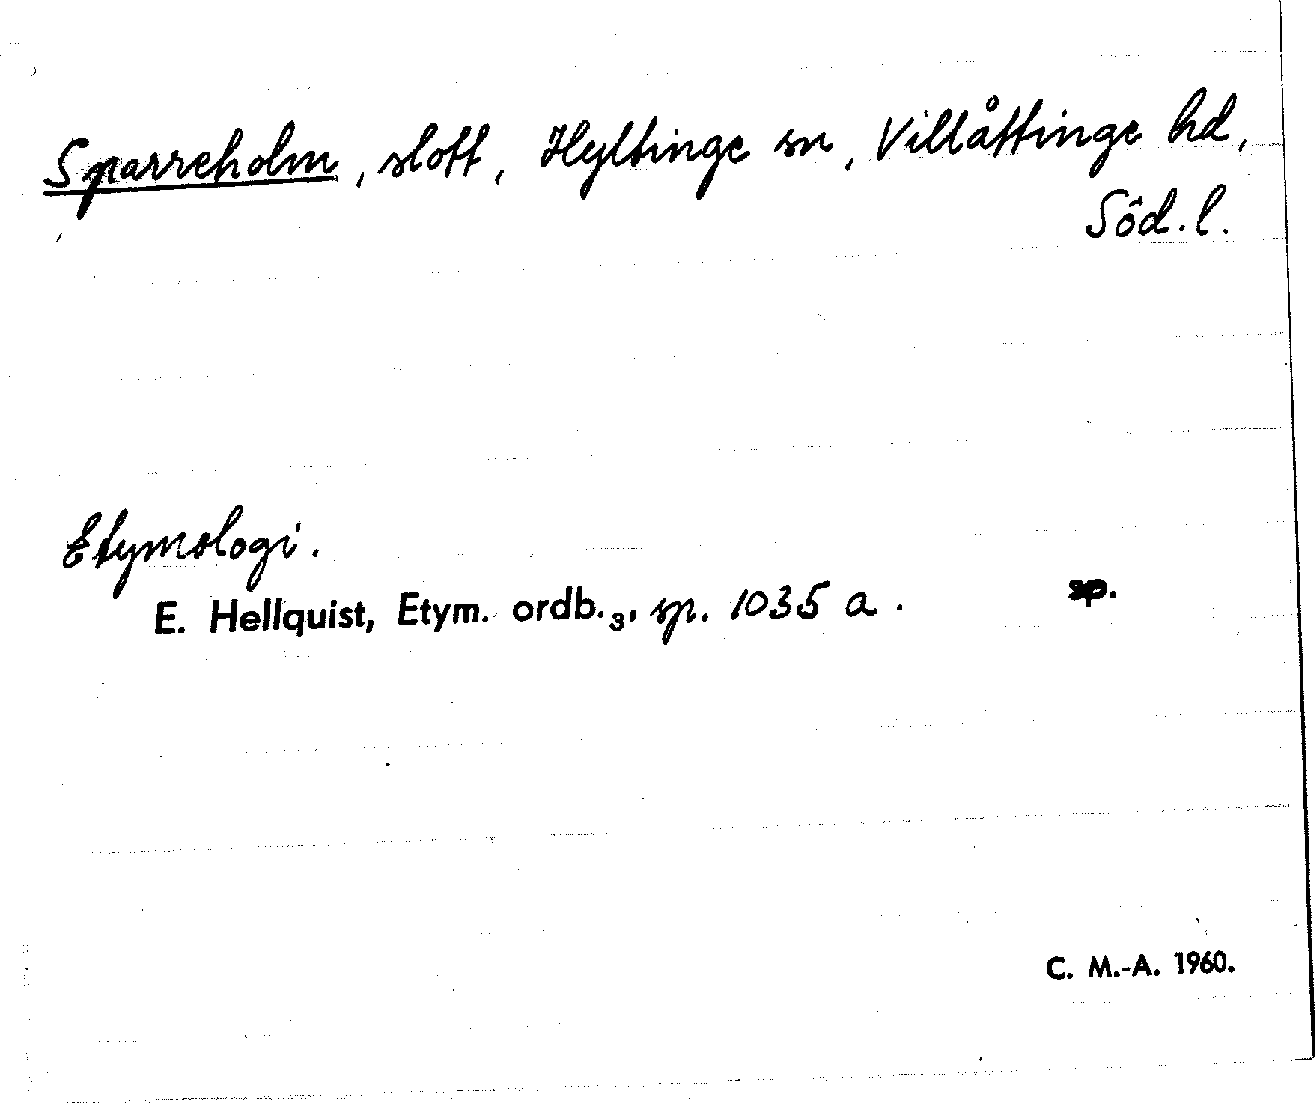 Sparreholm, slott, Hyltinge sn, Villåttinge hd,
Söd.l.
Etymologi.
E. Hellquist, Etym. ordb.₃, sp. 1035 a. sp.
C. M.-A. 1960.